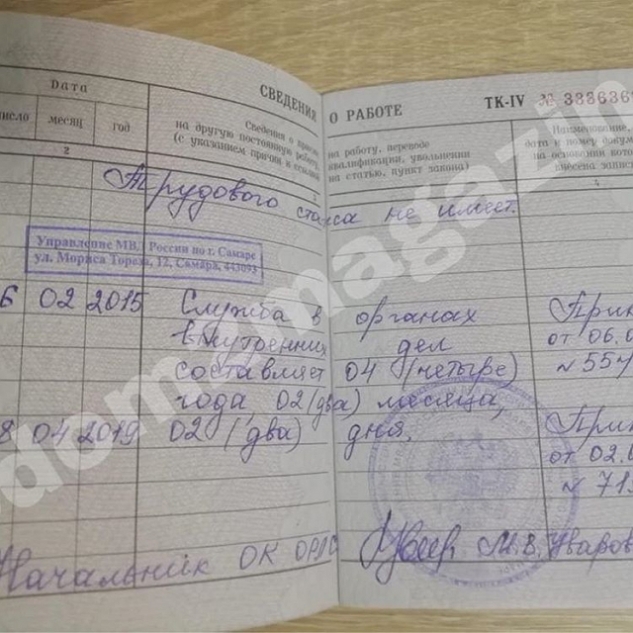 СВЕДЕНИЯ О РАБОТЕ ТК-IV №
Дата
число месяц год
Сведения о
на другую постоянную работу,
(с указанием причин и
на работу, переводе
квалификации, увольнении
на статью, пункт закона)
Наименование,
дата и номер
на основании
внесена
2
Трудового стажа не имеет.
Управление МВ России по г. Самаре
ул. Мориса Тореза, 12, Самара, 443093
6 02 2015 Служба в органах
внутренних дел
составляет 04 (четыре)
года, 02 (два) месяца,
8 04 2019 02 (два) дня.
от 06.0
№ 557
от 02.0
№ 71
Начальник ОК М.В. Уварова
dom2magazin